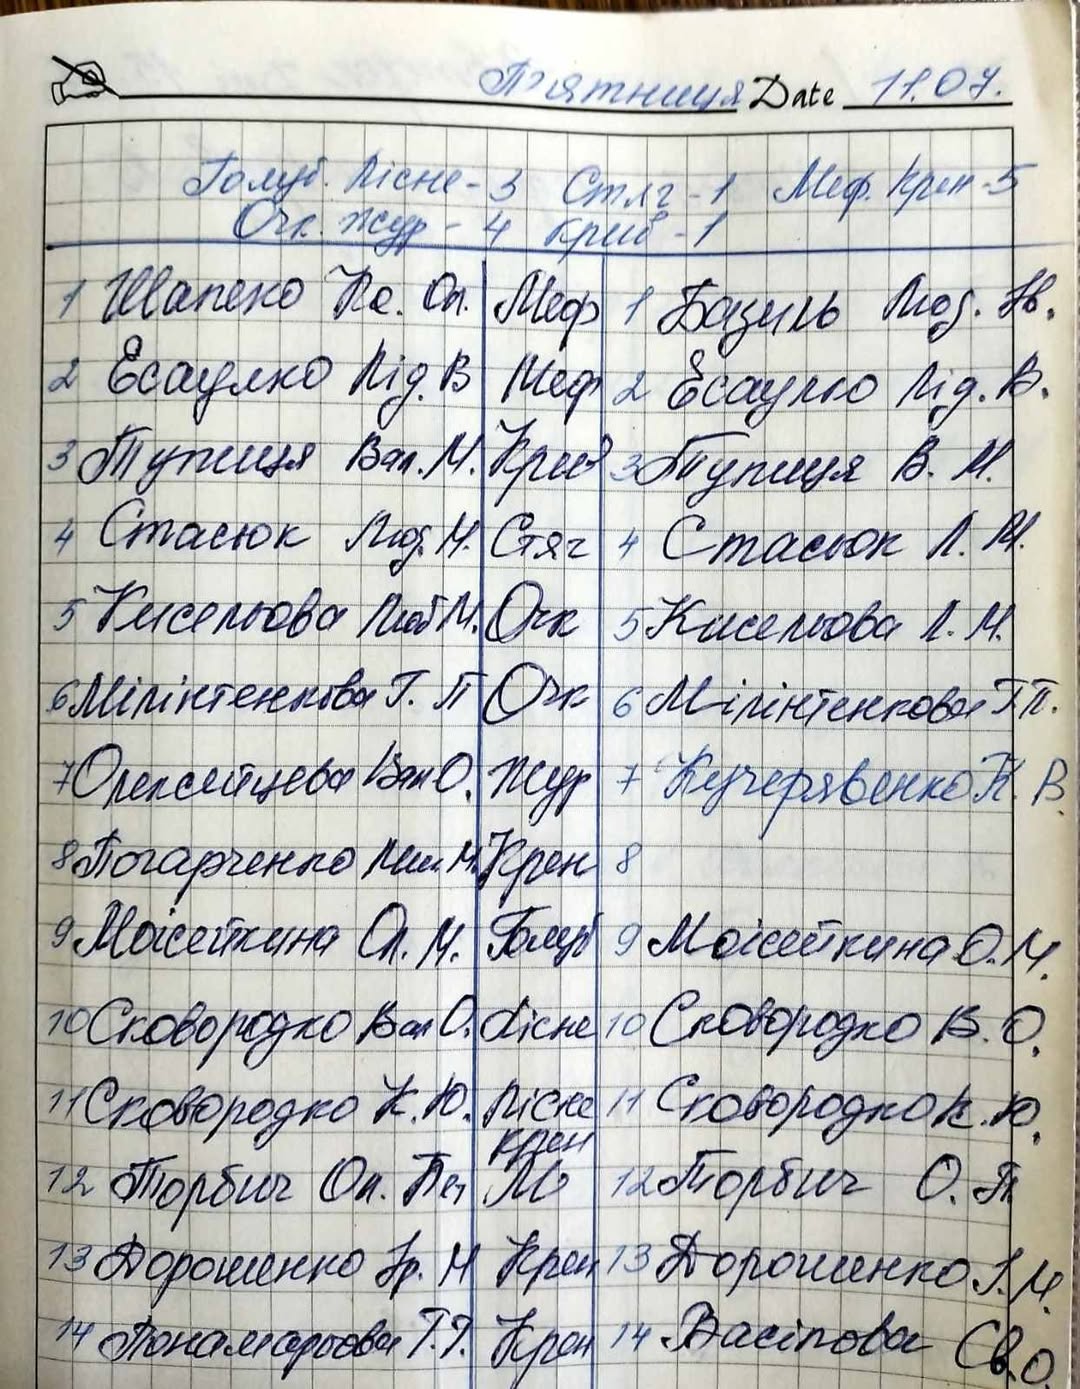 П'ятниця Date 11.07.
Голуб. Лісне - 3 Стяг - 1 Меф. Крен - 5
Очк. Жур - 4 Крив - 1
1 Шапеко Ол. Меф 1 Базиль Люд. Ів.
2 Есаулко Лід. В Меф 2 Есаулко Лід. В.
3 Тупиця Вал. М. Крив 3 Тупиця В. М.
4 Стасюк Люд. М. Стяг 4 Стасюк Л. М.
5 Кисельова Люб М. Очк 5 Кисельова Л. М.
6 Мілінтенкова Г. П Очк 6 Мілінтенкова Г П.
7 Олексейцева Вал О. Жур 7 Кучерявенко К. В.
8 Погарченко М. Крен 8
9 Моісейкина Ол. М. Голуб 9 Моісейкина О. М.
10 Сковородко Вал О. Лісне 10 Сковородко В. О.
11 Сковородко К. Ю. Лісне 11 Сковородко К. Ю.
12 Торбич Ол. Пет Крен 12 Торбич О. П.
13 Дорошенко Ір. М Крен 13 Дорошенко І. М.
14 Понамарьова Т. Г. Крен 14 Васілова Св. О.